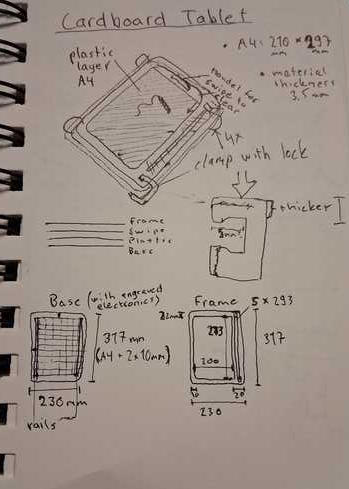 Cardboard Tablet
plastic
layer
A4
• A4: 210 × 297
mm mm
• material
thickness
3,5 mm
handel for
swipe to
clear
4x
clamp with lock
thicker
Frame
Swipe
Plastic
Base
Base (with engraved
electronics)
317 mm
(A4 + 2x10mm)
230 mm
rails
Frame
5 × 293
317
200
10
20
230